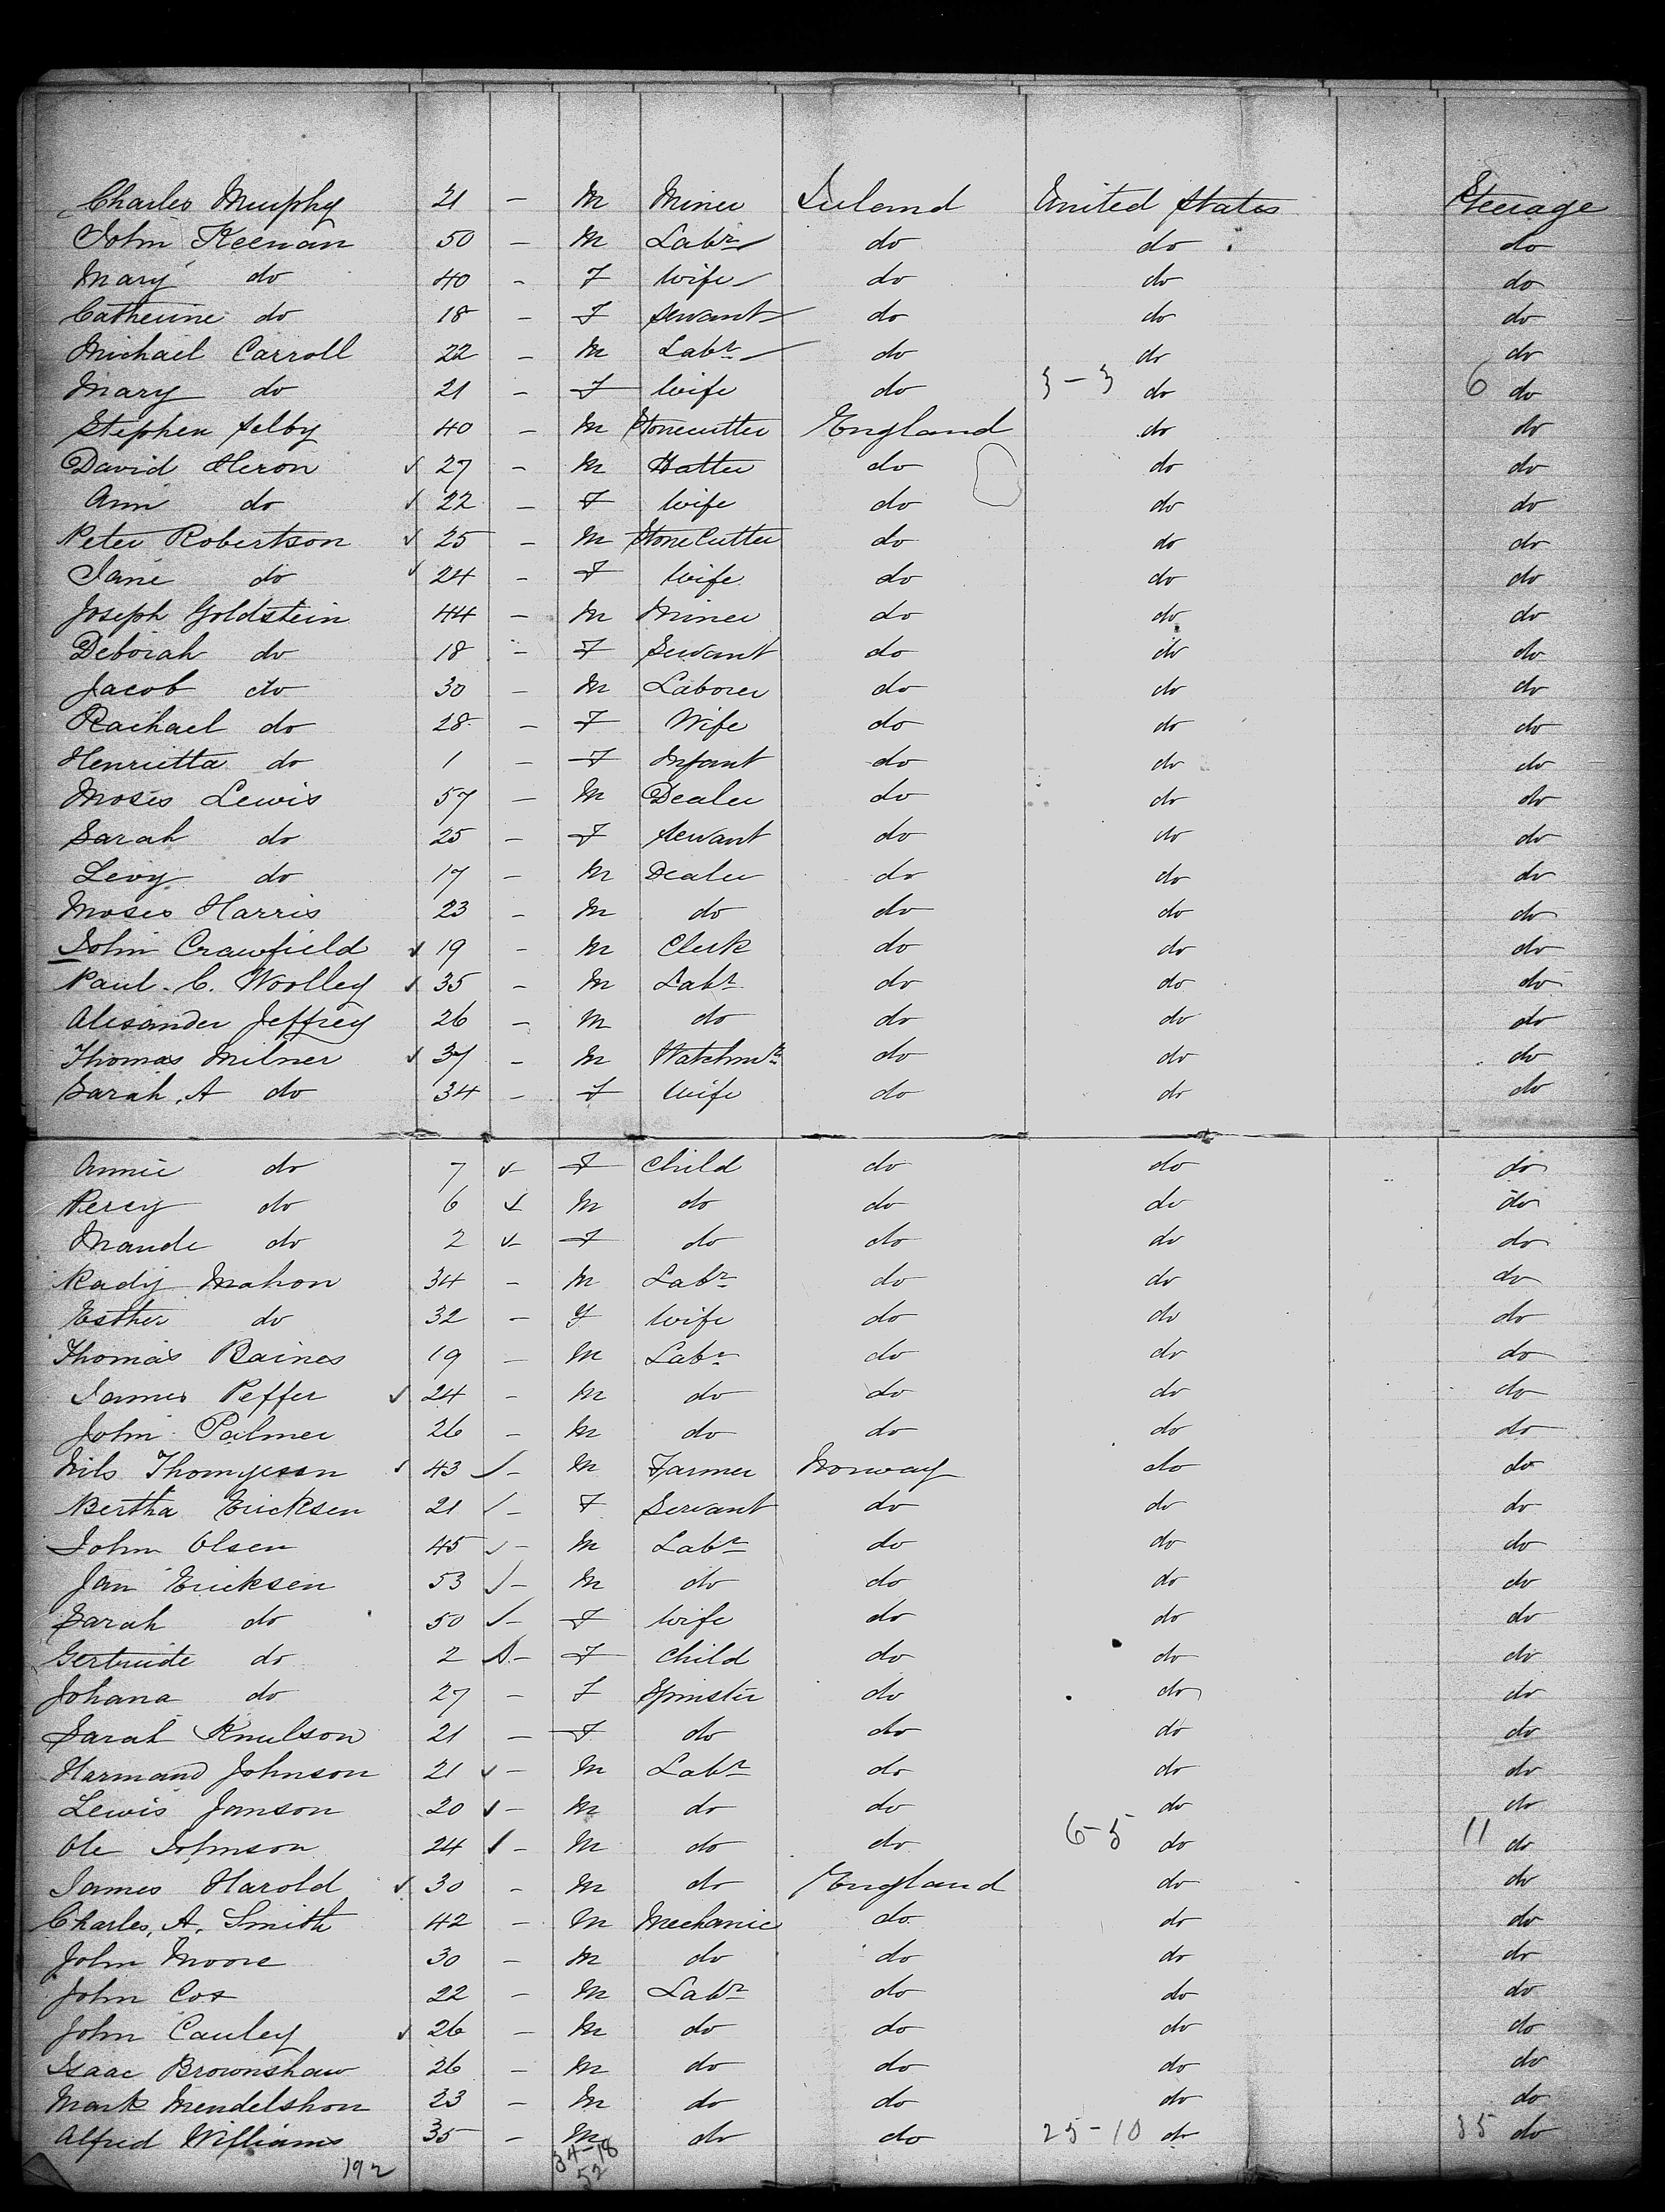 Charles Murphy 21 - M Miner Ireland United States Steerage
John Keenan 50 - M Labr do do do
Mary do 40 - F Wife do do do
Catherine do 18 - F Servant do do do
Michael Carroll 22 - M Labr do do do
Mary do 21 - F Wife do 3-3 do 6 do
Stephen Selby 40 - M Stonecutter England do do
David Heron ✓ 27 - M Hatter do do do
Ann do ✓ 22 - F Wife do do do
Peter Robertson ✓ 25 - M Stone Cutter do do do
Jane do ✓ 24 - F Wife do do do
Joseph Goldstein 44 - M Miner do do do
Deborah do 18 - F Servant do do do
Jacob do 30 - M Laborer do do do
Rachael do 28 - F Wife do do do
Henrietta do 1 - F Infant do do do
Moses Lewis 57 - M Dealer do do do
Sarah do 25 - F Servant do do do
Levy do 17 - M Dealer do do do
Moses Harris 23 - M do do do do
John Crawfield ✓ 19 - M Clerk do do do
Paul C. Woolley ✓ 35 - M Labr do do do
Alexander Jeffrey 26 - M do do do do
Thomas Milner ✓ 37 - M Watchmr do do do
Sarah, A do 34 - F Wife do do do
Annie do 7 ✓ F Child do do do
Percy do 6 ✓ M do do do do
Maude do 2 ✓ F do do do do
Mahon 34 - M Labr do do do
Esther do 32 - F Wife do do do
Thomas Baines 19 - M Labr do do do
James Peffer ✓ 24 - M do do do do
John Palmer 26 - M do do do do
Nils ✓ 43 ✓ - M Farmer Norway do do
Bertha Ericksen 21 ✓ - F Servant do do do
John Olsen 45 ✓ - M Labr do do do
Jan Ericksen 53 ✓ - M do do do do
Sarah do 50 ✓ - F Wife do do do
Gertruide do 2 - F Child do do do
Johana do 27 - F Spinster do do do
Sarah Knulson 21 - F do do do do
Harmand Johnson 21 ✓ - M Labr do do do
Lewis Janson 20 ✓ - M do do do do
Ole Johnson 24 ✓ - M do do 6-5 do 11 do
James Harold ✓ 30 - M do England do do
Charles, A. Smith 42 - M Mechanic do do do
John Moore 30 - M do do do do
John Cox 22 - M Labr do do do
John Cauley ✓ 26 - M do do do do
Isaac Brownshaw 26 - M do do do do
Mark Mendelshon 23 - M do do do do
Alfred Williams 35 - M do do 25-10 do 35 do
192 34-18
52